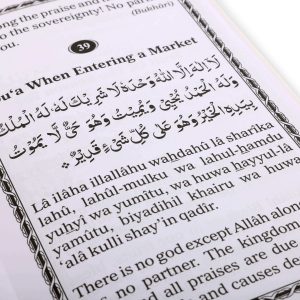 ong the praise and
o the sovereignty! No par
ou. (Bukhârî)
39
u'a When Entering a Market
لَا اِلٰهَ اِلَّا اللّٰهُ وَحْدَهُ لَا شَرِيْكَ لَهُ لَهُ الْمُلْكُ
وَلَهُ الْحَمْدُ يُحْيِيْ وَيُمِيْتُ وَهُوَ حَيٌّ لَّا يَمُوْتُ
بِيَدِهِ الْخَيْرُ وَهُوَ عَلٰى كُلِّ شَيْءٍ قَدِيْرٌ
Lâ ilâha illallâhu wahdahû lâ sharîka
lahû, lahûl-mulku wa lahul-hamdu
yuhyî wa yumîtu, wa huwa hayyul-lâ
yamûtu, biyadihil khairu wa huwa
'alâ kulli shay'in qadîr.
There is no god except Allâh alon
no partner. The kingdom
all praises are due
and causes de